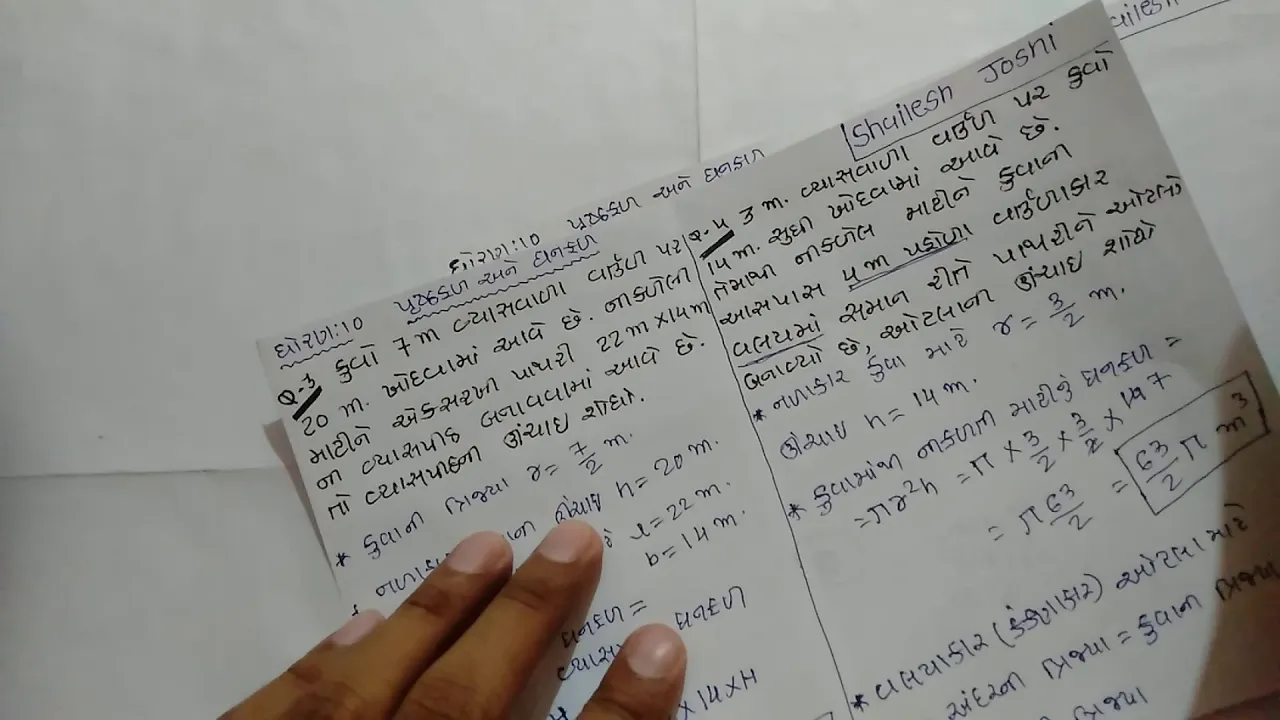 ailesh
Shailesh Joshi
ધોરણ:10 પૃષ્ઠફળ અને ઘનફળ
ધોરણ:10 પૃષ્ઠફળ અને ઘનફળ
Q-3 કુવો 7m વ્યાસવાળા વર્તુળ પર
20 m. ખોદવામાં આવે છે. નીકળેલી
માટીને એકસરખી પાથરી 22m×14m
ના વ્યાસપીઠ બનાવવામાં આવે છે.
તો વ્યાસપીઠની ઊંચાઇ શોધો.
* કુવાની ત્રિજ્યા r = 7/2 m.
ઊંચાઇ h = 20 m.
l = 22 m.
b = 14 m.
ઘનફળ =
ઘનફળ
×14×H
Q-4 3 m. વ્યાસવાળા વર્તુળ પર કુવો
14 m. સુધી ખોદવામાં આવે છે.
તેમાંથી નીકળેલ માટીને કુવાની
આસપાસ 4m પહોળા વર્તુળાકાર
વલયમાં સમાન રીતે પાથરીને ઓટલો
બનાવ્યો છે, ઓટલાની ઊંચાઇ શોધો
* નળાકાર કુવા માટે r = 3/2 m.
ઊંચાઇ h = 14 m.
* કુવામાંથી નીકળતી માટીનું ઘનફળ =
= πr²h = π × 3/2 × 3/2 × 14 7
= π 63/2 = 63/2 π m³
* વલયાકાર (કંકણાકાર) ઓટલા માટે
અંદરની ત્રિજ્યા = કુવાની ત્રિજ્યા
ત્રિજ્યા